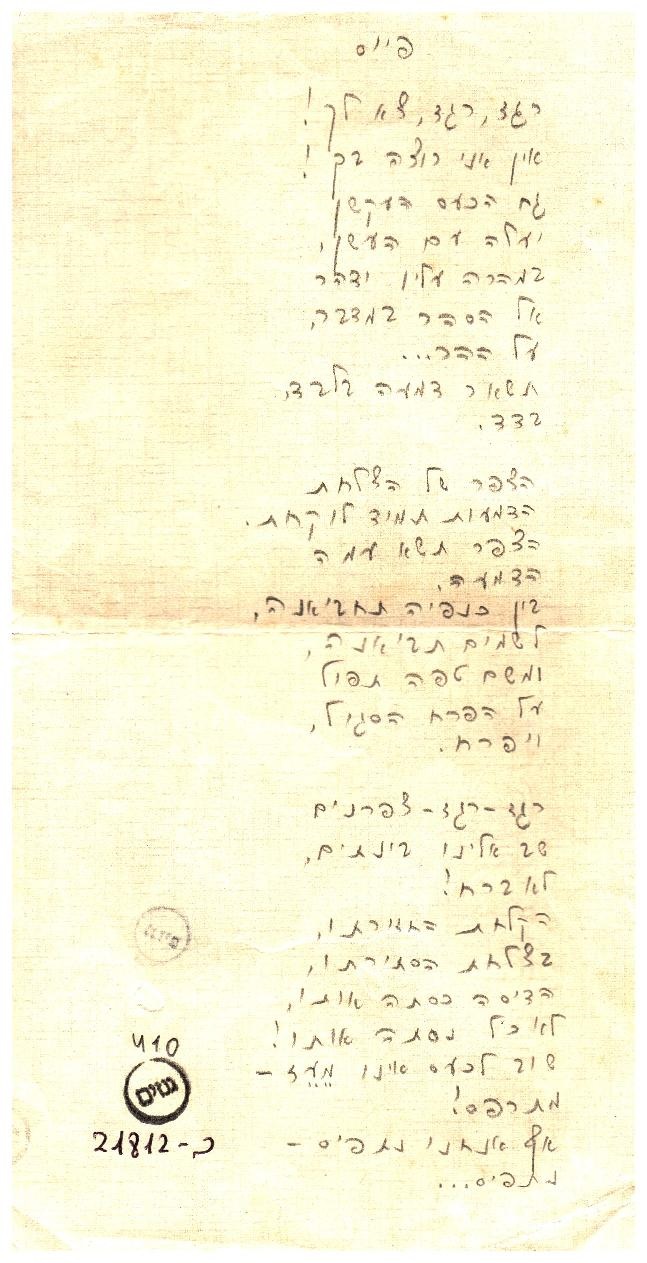 פיוס
רגז, רגז, צא לך!
אין אני רוצה בך!
גם הכעס העקשן
יעלה עם העשן,
במהרה עלינו ידהר
אל הסהר במדבר,
על ההר...
תשאר דמעה בלבד,
בדד.
הצפר של הצלחת
הדמעות תמיד לוקחת.
הצפר תשא עמה
הדמעה,
בין כנפיה תחביאנה,
לשמים תביאנה,
ומשם טפה תפול
על הפרח הסגול,
ויפרח.
רגז-רגז-צפרנים
שב אלינו בינתים,
לא ברח!
הקלחת החזירתו,
בצלחת הסתירתו,
הדיסה כסתה אותו,
לא כל נסתה אותו!
שוב לכעס אינו מעז -
מתרפס!
אף אנחנו נתפיס -
נתפיס...
גנזים
410
גנזים
כ-21812